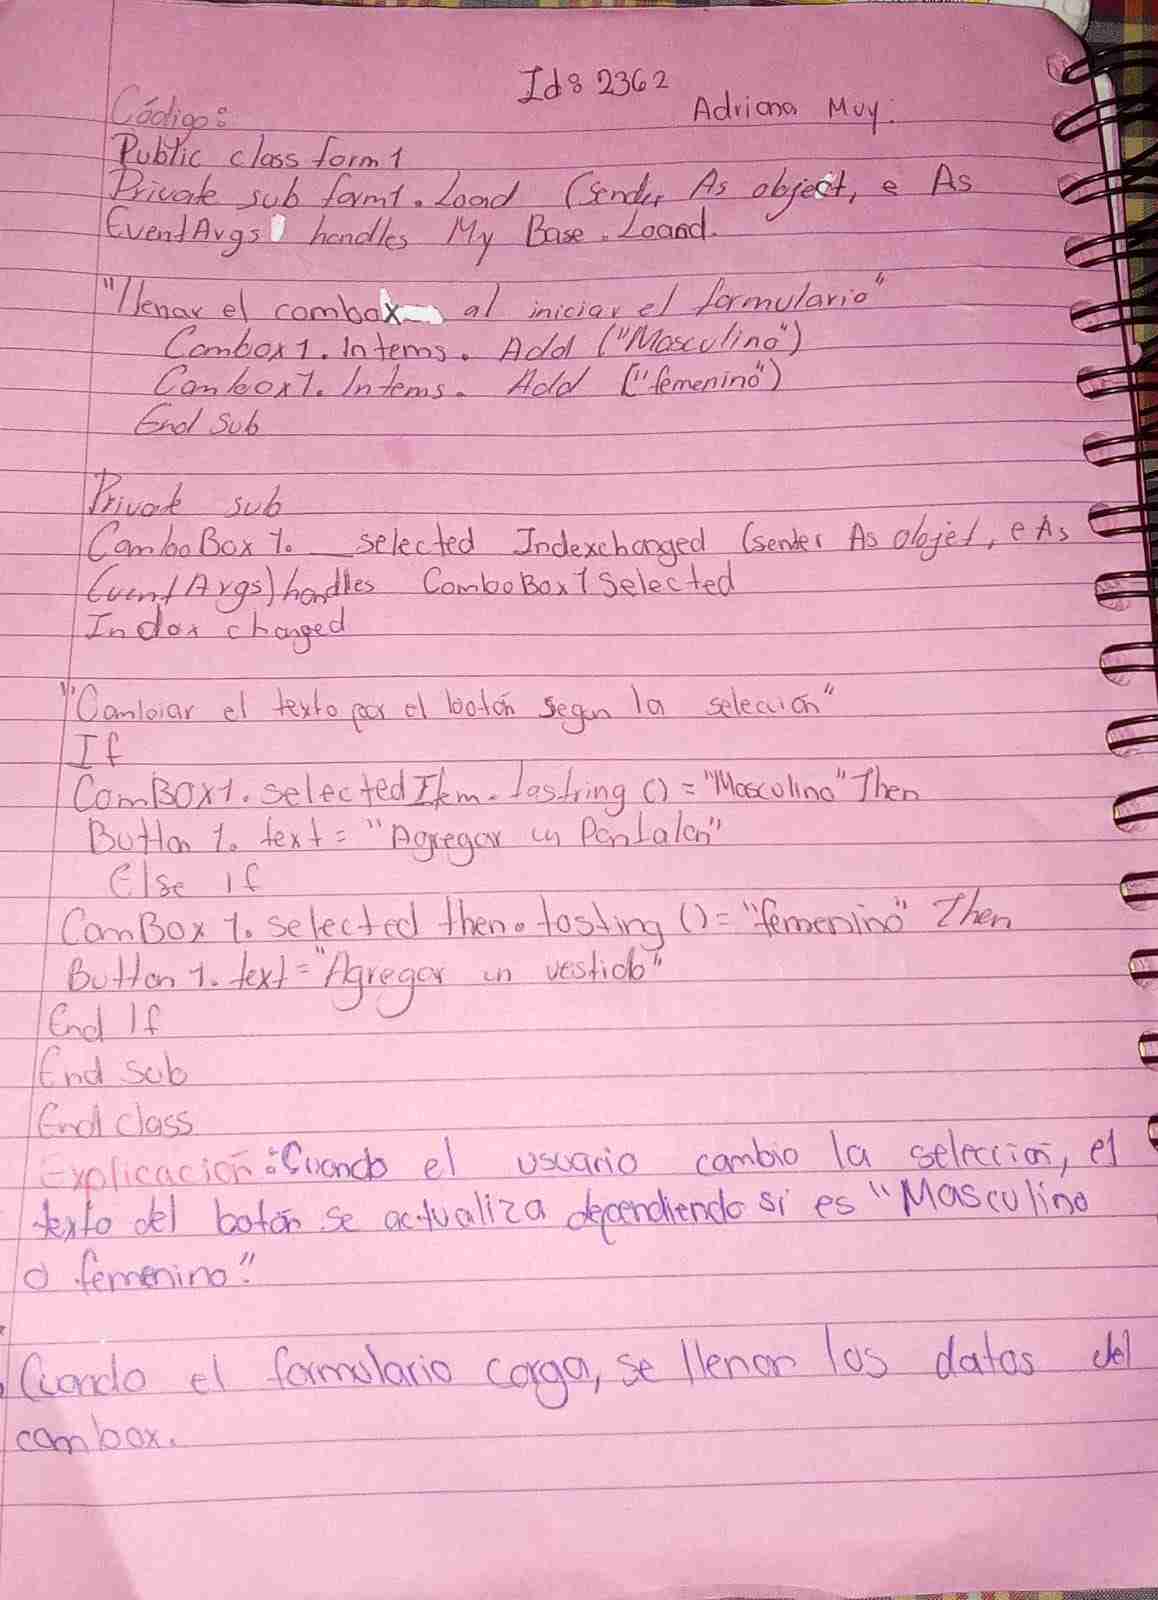 Id: 2362
Adriana Muy.
Código:
Public class form1
Private sub form1.Load (sender As object, e As
EventArgs) handles My Base.Loand.
"llenar el combox al iniciar el formulario"
Combox1.Intems. Add ("Masculino")
Combox1.Intems. Add ("femenino")
End Sub
Private sub
ComboBox1._selected Indexchanged (sender As objet, e As
EventArgs) handles ComboBox1 Selected
Index changed
"Cambiar el texto por el botón segun la selección"
If
ComBOX1.selectedItem.tostring () = "Masculino" Then
Button 1. text = "Agregar un Pantalon"
Else if
ComBox 1. selected then.tosting () = "femenino" Then
Button 1. text = "Agregar un vestido"
End If
End sub
End class
Explicación: Cuando el usuario cambio la selección, el
texto del botón se actualiza dependiendo si es "Masculino
o femenino"
Cuando el formulario carga, se llenan los datos del
combox.